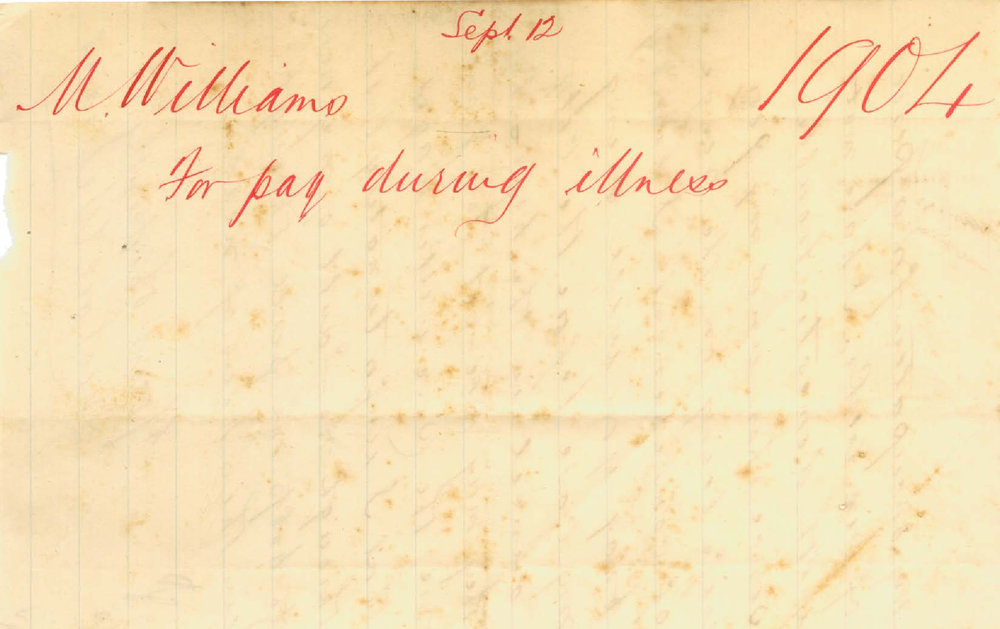 Sept. 12
M. Williams 1904
For pay during illness